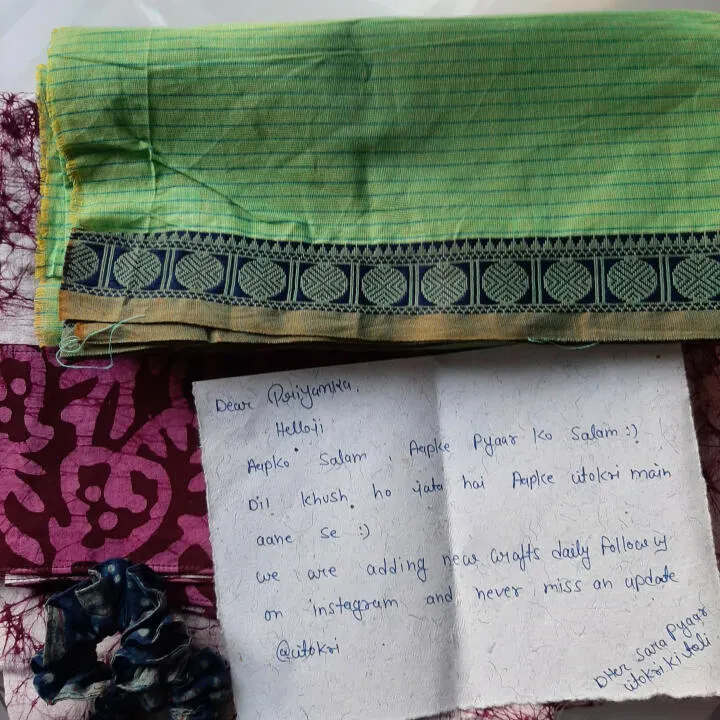 Dear Priyanka.
Helloji
Aapko Salam, Aapke Pyaar ko Salam :)
Dil khush ho jata hai Aapke itokri main
aane se :)
we are adding new crafts daily follow us
on instagram and never miss an update
@itokri
DHer sara Pyaar
itokri ki toli